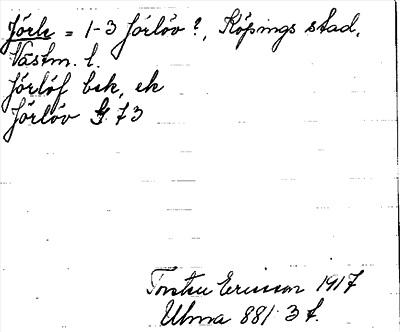 Jörlv = 1-3 Jörlöv?, Köpings stad,
Västm. l.
Jörlöf bek, ek
Jörlöv G. 73
Torsten Ericsson 1917
Ulvna 881 3 f.